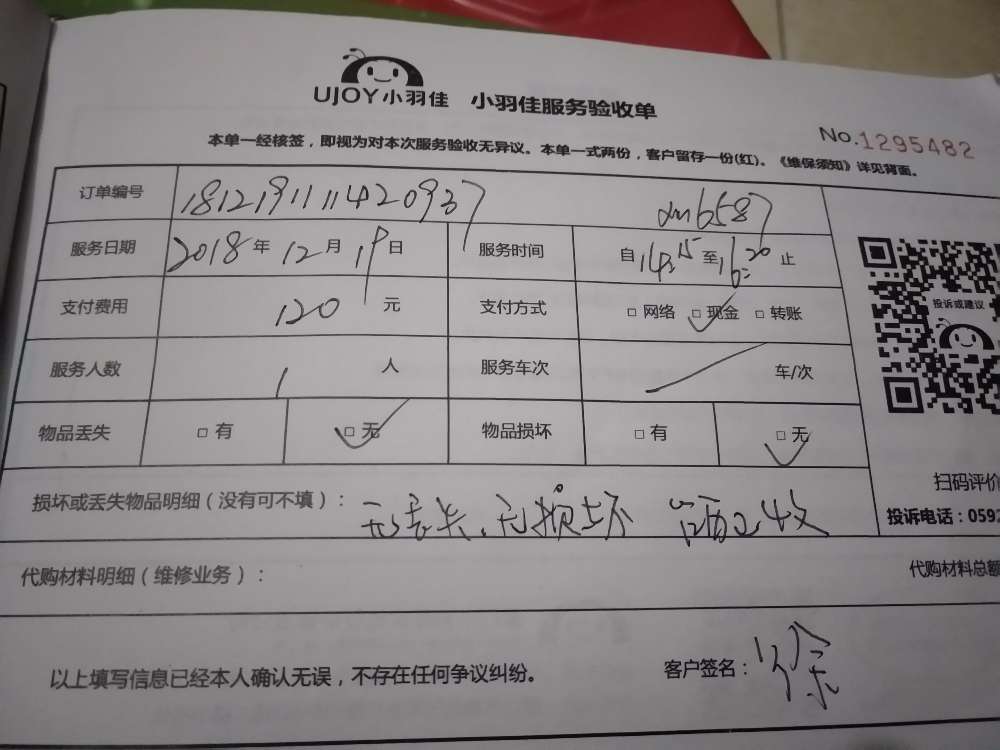 UJOY小羽佳 小羽佳服务验收单
No.1295482
本单一经核签，即视为对本次服务验收无异议。本单一式两份，客户留存一份(红)。《维保须知》详见背面。
订单编号 181219111420937 dm6587
服务日期 2018年12月19日 服务时间 自14:15至16:20止
支付费用 120元 支付方式 □网络 □现金 □转账
服务人数 1人 服务车次 车/次
物品丢失 □有 □无 物品损坏 □有 □无
投诉或建议
扫码评价
投诉电话：0592
损坏或丢失物品明细（没有可不填）： 无丢失、无损坏 已收
代购材料明细（维修业务）： 代购材料总额
以上填写信息已经本人确认无误，不存在任何争议纠纷。 客户签名：徐